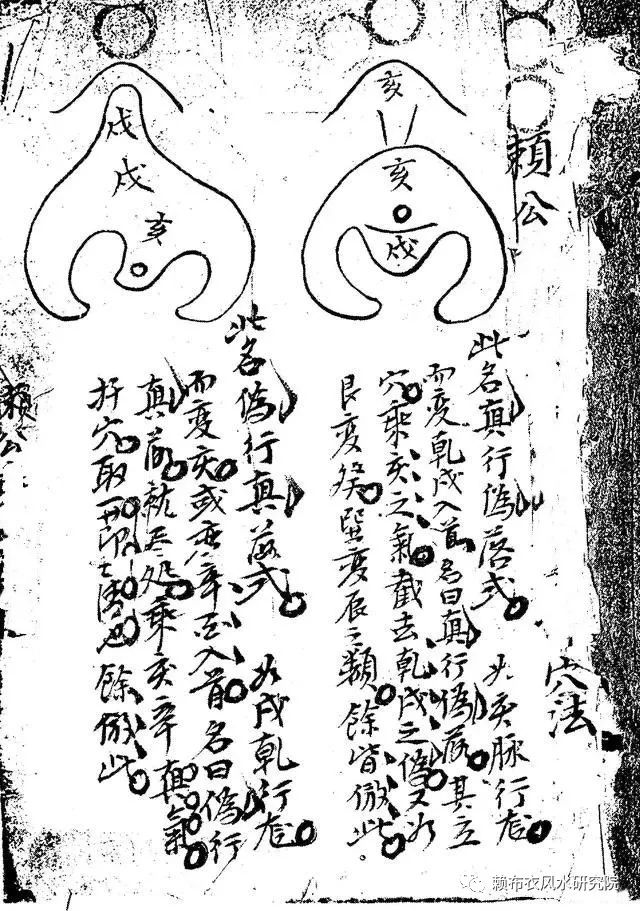 賴公
穴法
亥
亥
戌
此名真行偽落式 如亥脉行龙
而变乾戌入首名曰真行偽落其立
穴乘亥之氣截去乾戌之偽又如
艮变癸巽变辰之類餘皆倣此
戌
戌
亥
此名偽行真落式 如戌乾行龙
而变亥或变辛入首名曰偽行
真落就尽处乘亥辛真氣
扦穴取 餘倣此
賴公
赖布衣风水研究院